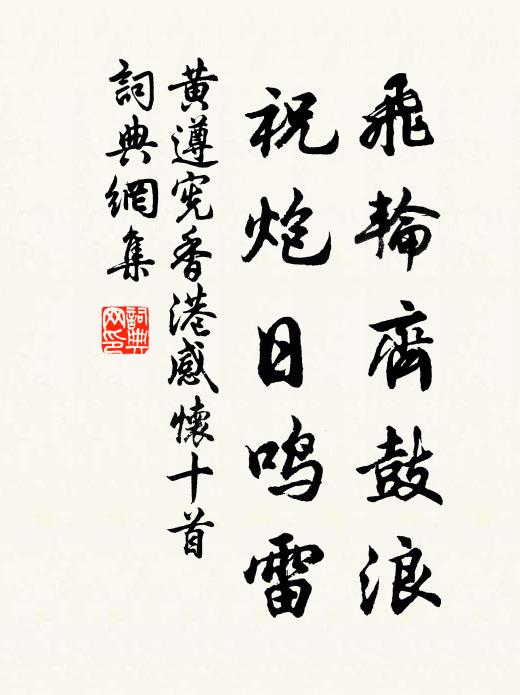 飛輪齊鼓浪
祝炮日鳴雷
黄遵宪香港感懷十首
詞典網集
詞典网印